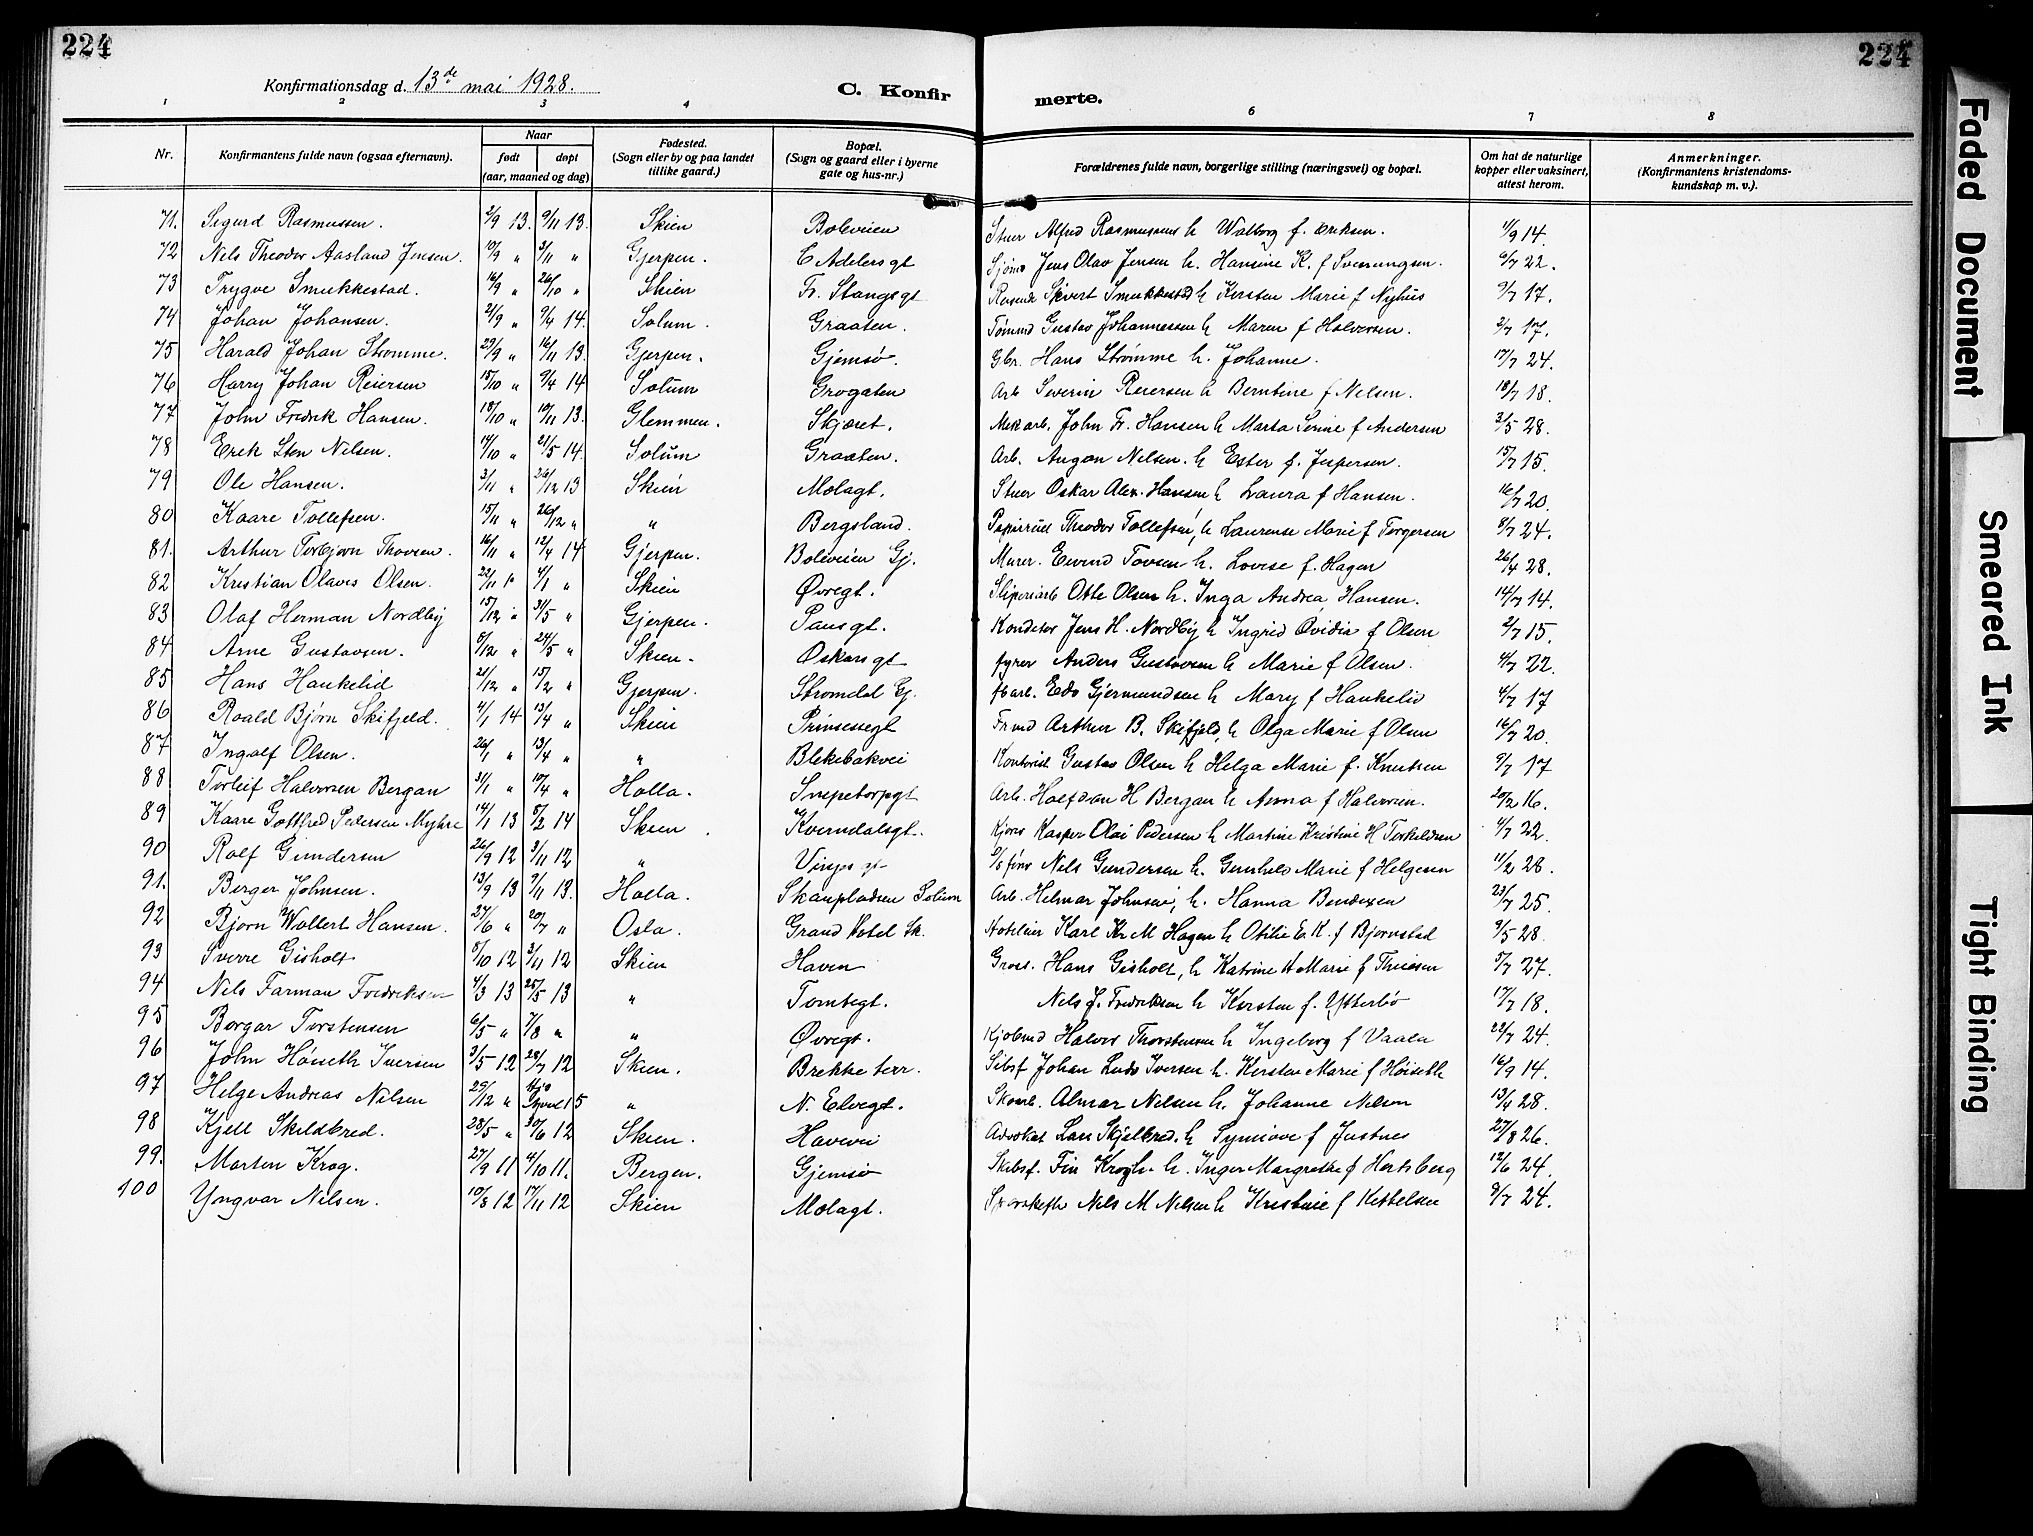 224 224
Konfirmationsdag d. 13de mai 1928. C. Konfirmerte.
1 2 3 4 6 7 8
Nr. Konfirmantens fulde navn (ogsaa efternavn). Naar født døpt (aar, maaned og dag) Fødested. (Sogn eller by og paa landet tillike gaard.) Bopæl. (Sogn og gaard eller i byerne gate og hus-nr.) Forældrenes fulde navn, borgerlige stilling (næringsvei) og bopæl. Om hat de naturlige kopper eller vaksinert, attest herom. Anmerkninger. (Konfirmantens kristendomskundskap m. v.).
71. Sigurd Rasmussen. 2/9 13. 9/11 13. Skien Boleveien Stuer Alfred Rasmussen h Walborg f. Eriksen. 11/9 14.
72 Nils Theodor Aasland Jensen. 10/9 " 3/11 " Gjerpen. C Adelersgt Sjøm Jens Olav Jensen h. Hansine K. f Sverungsen. 6/7 22.
73 Trygve Smukkestad. 16/9 " 26/10 " Skien Fr. Stangsgt Sivert Smukkestad h Kirsten Marie f Nyhus 9/7 17.
74 Johan Johansen. 21/9 " 9/4 14. Solum. Graaten. Tømmd Gustav Johannessen h Maren f Halvorsen. 2/7 17.
75 Harald Johan Strømme. 29/9 " 16/11 13. Gjerpen. Gjemsø. Gbr. Hans Strømme h. Johanne. 17/7 24.
76 Harry Johan Reiersen 15/10 " 9/4 14 Solum Grogaten Arb Severin Reiersen h Berntine f Nelsen. 18/7 18.
77 John Fredrik Hansen. 18/10 " 10/11 13. Glemmen. Skjæret. Mek arb. John Fr. Hansen h Marta Senie f Andersen 3/5 28.
78 Erik Sten Nilsen. 14/10 " 21/5 14. Solum Graaten. Arb. Augon Nilsen. h Ester f. Jespersen. 15/7 15.
79 Ole Hansen. 3/11 " 26/12 13 Skien Molagt. Stuer Oskar Alex. Hansen h Laura f Hansen. 16/7 20.
80 Kaare Tollefsen. 15/11 " 26/12 " " Bergsland. Theodor Tollefsen, h Laurense Marie f Torgersen 8/7 24.
81. Arthur Torbjørn Thovsen. 16/11 " 12/4 14 Gjerpen. Boleveien Gj. Murer. Eivind Tovsen h. Lovise f. Hagen 26/4 28.
82 Kristian Olaves Olsen. 22/11 " 4/1 " Skien Øvregt. Sliperiarb Otto Olsen h. Inga Andrea Hansen. 14/7 14.
83 Olaf Herman Nordbÿ 15/12 " 31/5 " Gjerpen. Pausgt. Konditor Jens H. Nordbÿ h Ingrid Ovidia f Olsen 2/7 15.
84 Arne Gustavsen. 8/12 " 24/5 " Skien. Oskarsgt fyrer Anders Gustavsen h Marie f Olsen. 4/7 22.
85 Hans Haukelid 21/12 " 15/2 " Gjerpen. Strømdal Gj. fbarb. Edv Gjermundsen h Mary f Haukelid 4/7 17
86 Roald Bjørn Skifjeld. 4/1 14 13/4 " Skien Prinsessegt Frmd Arthur B. Skifjeld h Olga Marie f Olsen 16/7 20.
87 Ingolf Olsen. 26/1 " 13/4 " " Blekebakvei Kontorist Gustav Olsen h Helga Marie f. Knutsen 9/7 17
88 Torleif Halvorsen Bergan 31/1 " 10/4 " Holla. Snipetorpgt Arb. Halfdan H Bergan h Anna f Halvorsen. 20/2 16.
89 Kaare Gottfred Pedersen Myhre 14/1 13 8/2 14 Skien. Kverndalsgt. Kasper Olai Pedersen h Martine Kristine H Torkildsen 4/7 22.
90 Rolf Gundersen 26/9 12 3/11 12 " Nils Gundersen h. Gunhild Marie f Helgesen 11/2 28.
91. Berger Johnsen. 13/9 13 9/11 13. Holla. Skaupladsen Solum Arb. Helmar Johnsen, h. Hanna Bendixen 23/7 25.
92 Bjørn Wollert Hansen. 27/6 " 20/7 " Oslo. Grand Hotel Sk. Hoteleier Karl Kr M Hagen h Otilie E. K. f Bjørnstad 9/5 28.
93 Sverre Gisholt 8/10 12 3/11 12 Skien Haven Gross. Hans Gisholt, h Katrine H Marie f Thiesen 5/7 27.
94 Nils Farman Fredriksen 4/3 13 25/5 13 " Tomtegt. Nils J. Fredriksen h Kirsten f. Ytterbø 17/7 18.
95 Borgar Torstensen 6/5 " 7/8 " " Øvregt. Kjøbmd Halvor Thorstensen h Ingeborg f Vaala 22/7 24.
96 John Høiseth Iversen 3/5 12 28/7 12 Skien. Brekke terr. Sibsf Johan Ludv Iversen h. Kirsten Marie f Høiseth 16/9 14.
97 Helge Andreas Nilsen 29/12 " 15 " N. Elvegt. Skomb. Almar Nelsen h. Johanne Nelson 13/4 28.
98 Kjell Skilbred. 28/5 " 30/6 12 Skien. Havevei Advokat Lars Skjelbred. h Syniøve f Justnes 27/8 26.
99. Morten Krog. 27/9 11 4/10 11. Bergen. Gjemsø Skibsf. Fin Krogh. h. Inger Margrethe f Hertsberg 12/6 24.
100 Yngvar Nilsen. 10/8 12 17/11 12 Skien Molagt. Nils M Nilsen h Kristine f Kittelsen 9/7 24.
Faded Document
Smeared Ink
Tight Binding